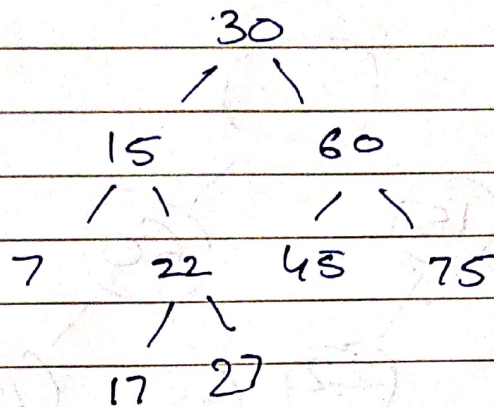 30
15 60
7 22 45 75
17 27